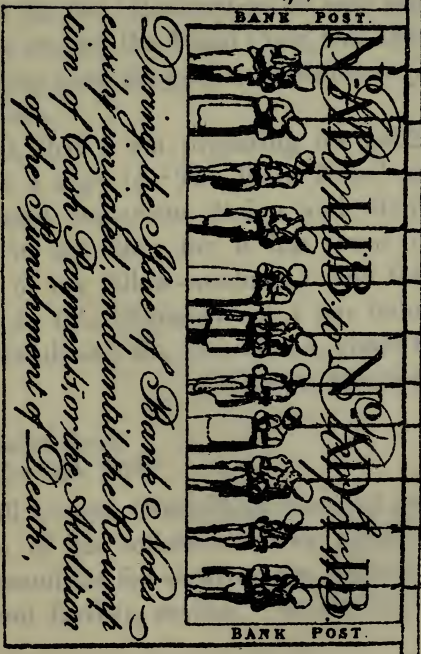 BANK POST.
No. AD LIB. No. AD LIB.
I Promise to Perform
During the Issue of Bank Notes
easily imitated, and until the Resump
tion of Cash Payments, or the Abolition
of the Punishment of Death,
BANK POST.